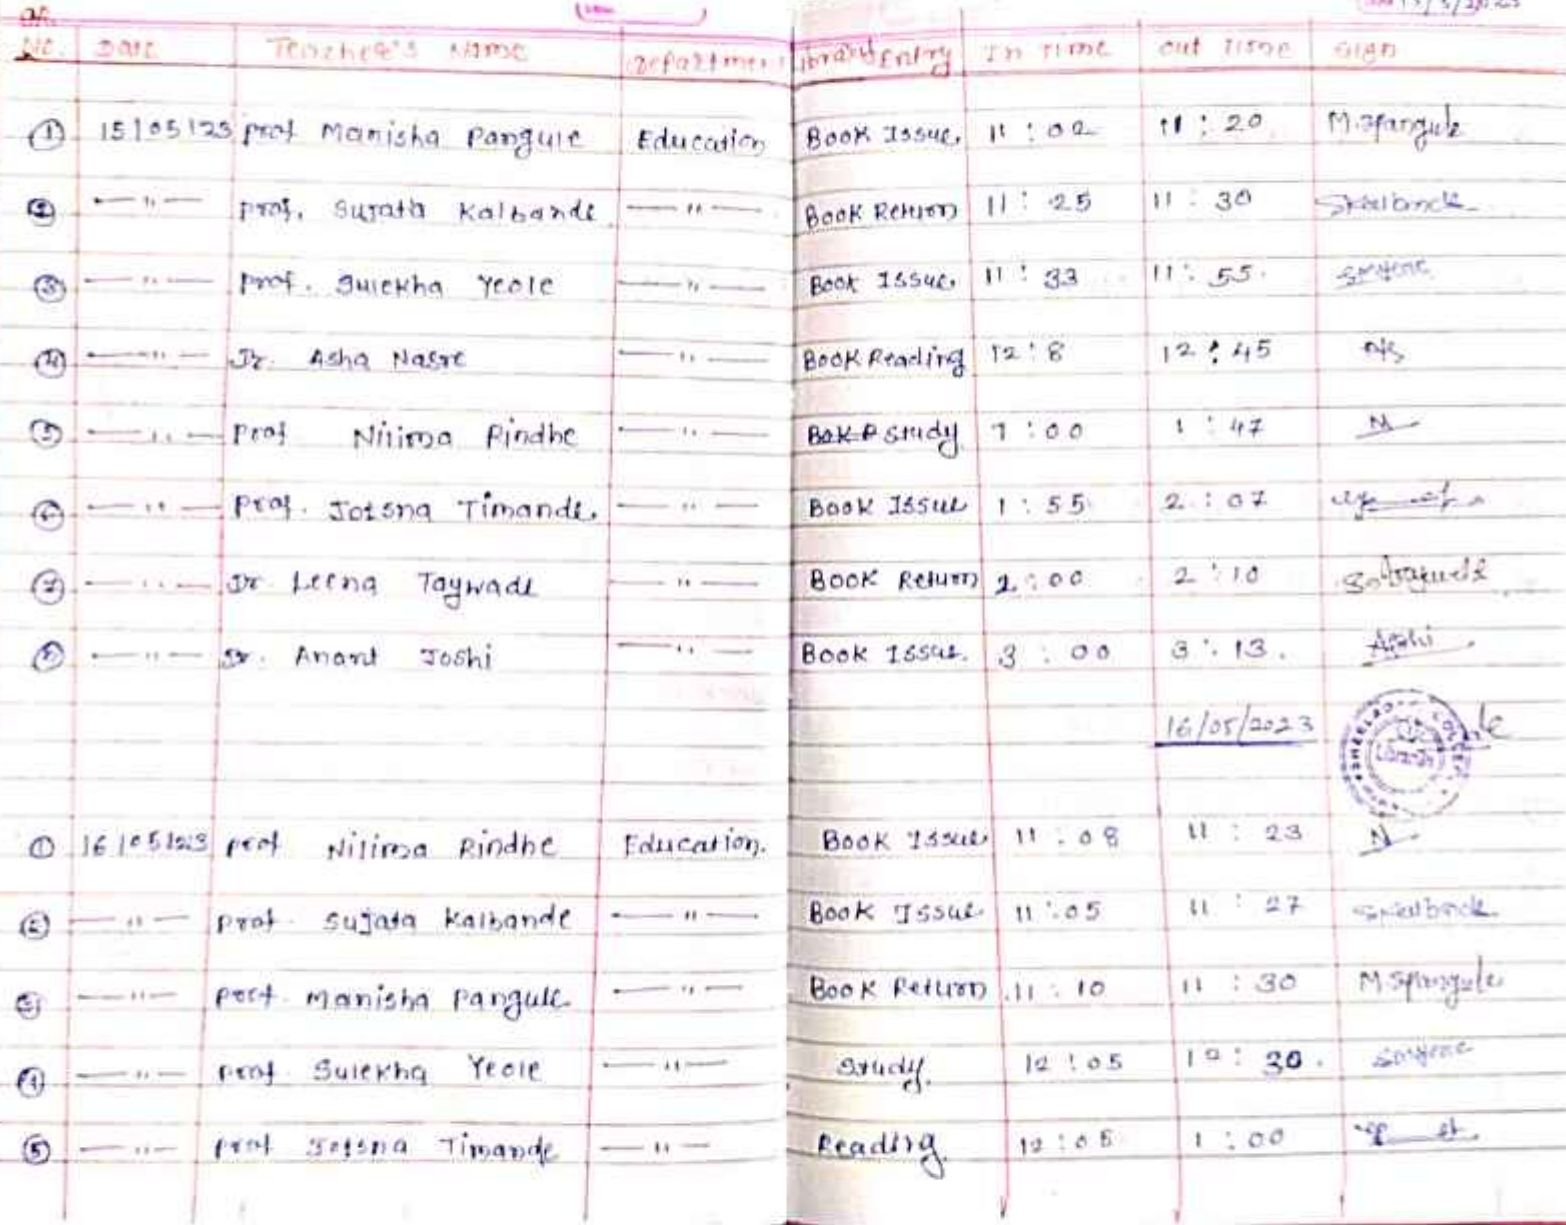 Sr. No. Date Teacher's Name Department Library Entry In Time Out Time Sign
① 15/05/23 Prof Manisha Pangule Education Book Issue. 11:02 11:20 M.SPangule
② —"— Prof. Sujata Kalbande —"— Book Return 11:25 11:30
③ —"— Prof. Sulekha Yeole —"— Book Issue. 11:33 11:55.
④ —"— Dr. Asha Nasre —"— Book Reading 12:8 12:45
⑤ —"— Prof Nilima Rindhe —"— Study 1:00 1:47 N
⑥ —"— Prof. Jotsna Timande. —"— Book Issue 1:55 2:07
⑦ —"— Dr Leena Taywade —"— Book Return 2:00 2:10
⑧ —"— Dr. Anant Joshi —"— Book Issue. 3:00 3:13. AJoshi
16/05/2023
① 16/05/23 Prof Nilima Rindhe Education. Book Issue 11:08 11:23 N
② —"— Prof. Sujata Kalbande —"— Book Issue 11:05 11:27
③ —"— Prof. Manisha Pangule —"— Book Return 11:10 11:30 M.SPangule
④ —"— Prof. Sulekha Yeole —"— Study. 12:05 12:30.
⑤ —"— Prof Jotsna Timande —"— Reading. 12:05 1:00